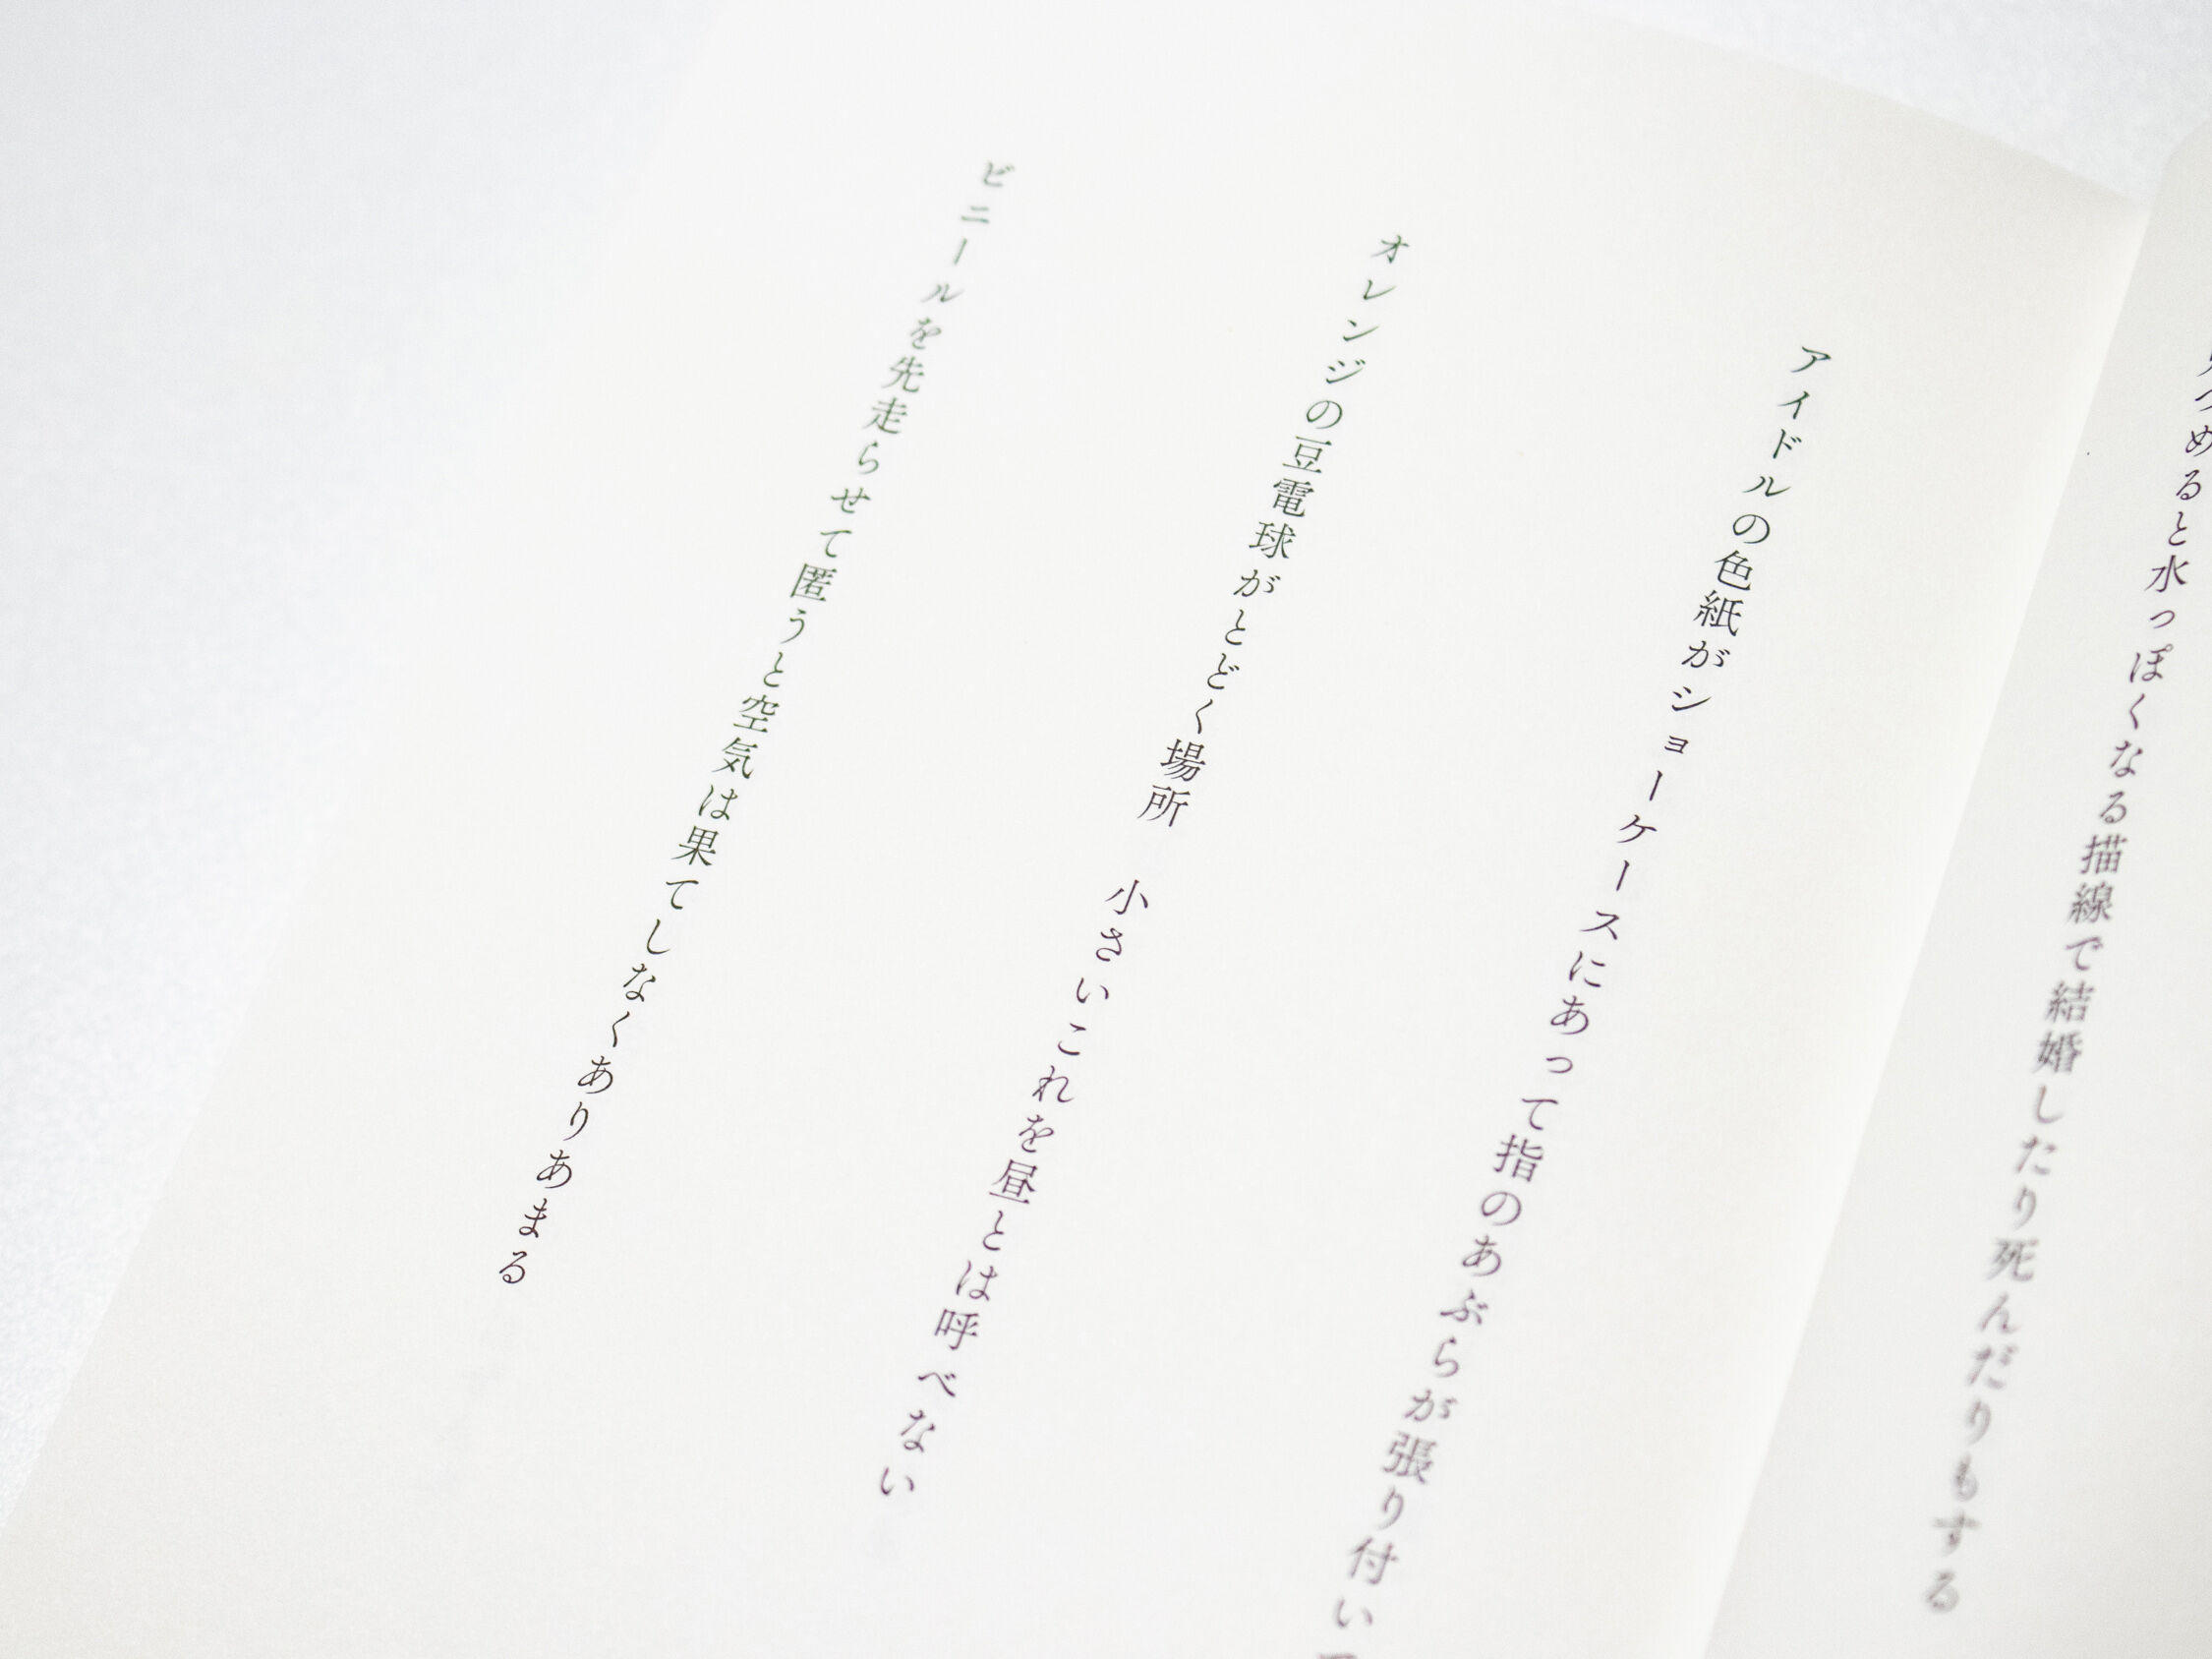 つめると水っぽくなる描線で結婚したり死んだりもする
アイドルの色紙がショーケースにあって指のあぶらが張り付い
オレンジの豆電球がとどく場所　小さいこれを昼とは呼べない
ビニールを先走らせて匿うと空気は果てしなくありあまる